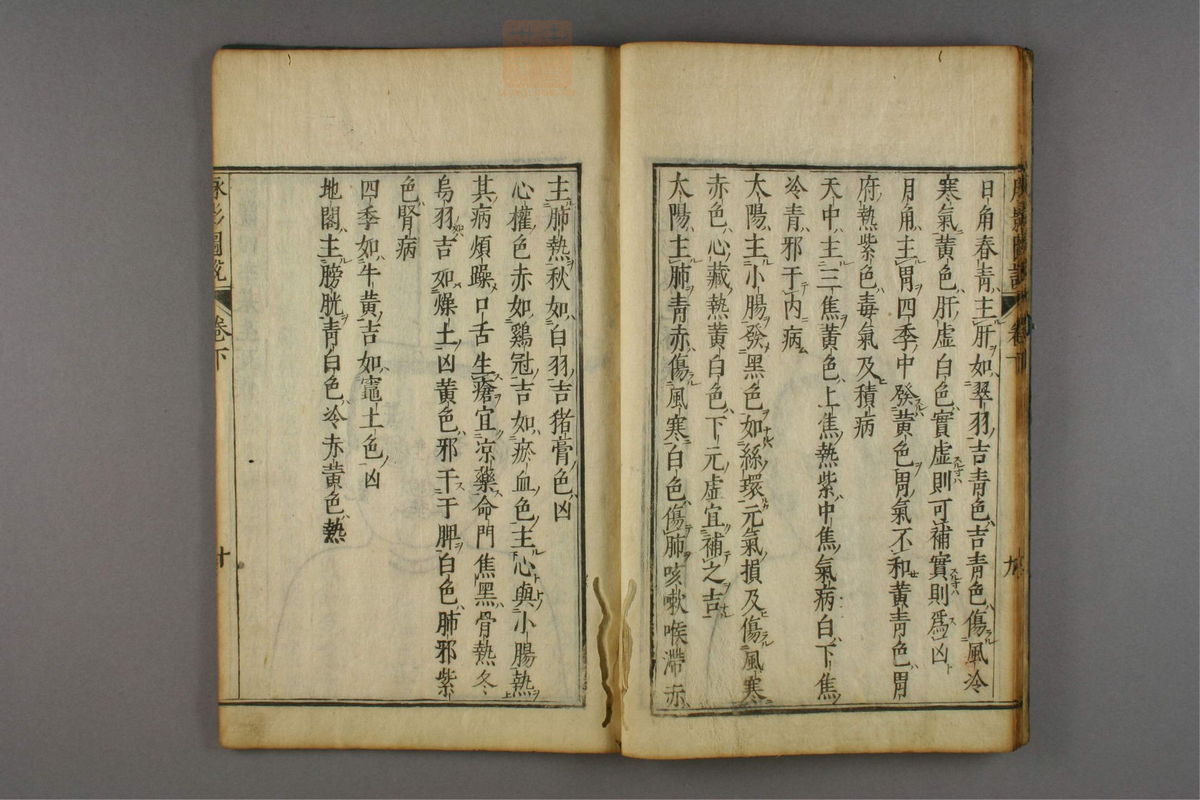 日角春青主肝如翠羽吉青色吉青色傷風冷
寒氣黄色肝虚白色實虚則可補實則爲凶
月角主胃四季中發黄色胃氣不和黄青色胃
府熱紫色毒氣及積病
天中主三焦黄色上焦熱紫中焦氣病白下焦
冷青邪于内病
太陽主小腸發黑色如絲環元氣損及傷風寒
赤色心藏熱黄白色下元虚宜補之吉
太陽主肺青赤傷風寒白色傷肺咳嗽喉滞赤
主肺熱秋如白羽吉猪膏色凶
心權色赤如鷄冠吉如瘀血色主心與小腸熱
其病煩躁口舌生瘡宜凉藥命門焦黑骨熱冬
烏羽吉如燥土凶黄色邪干于脾白色肺邪紫
色腎病
四季如牛黄吉如竈土色凶
地閣主膀胱青白色冷赤黄色熱
圖説 卷下 十